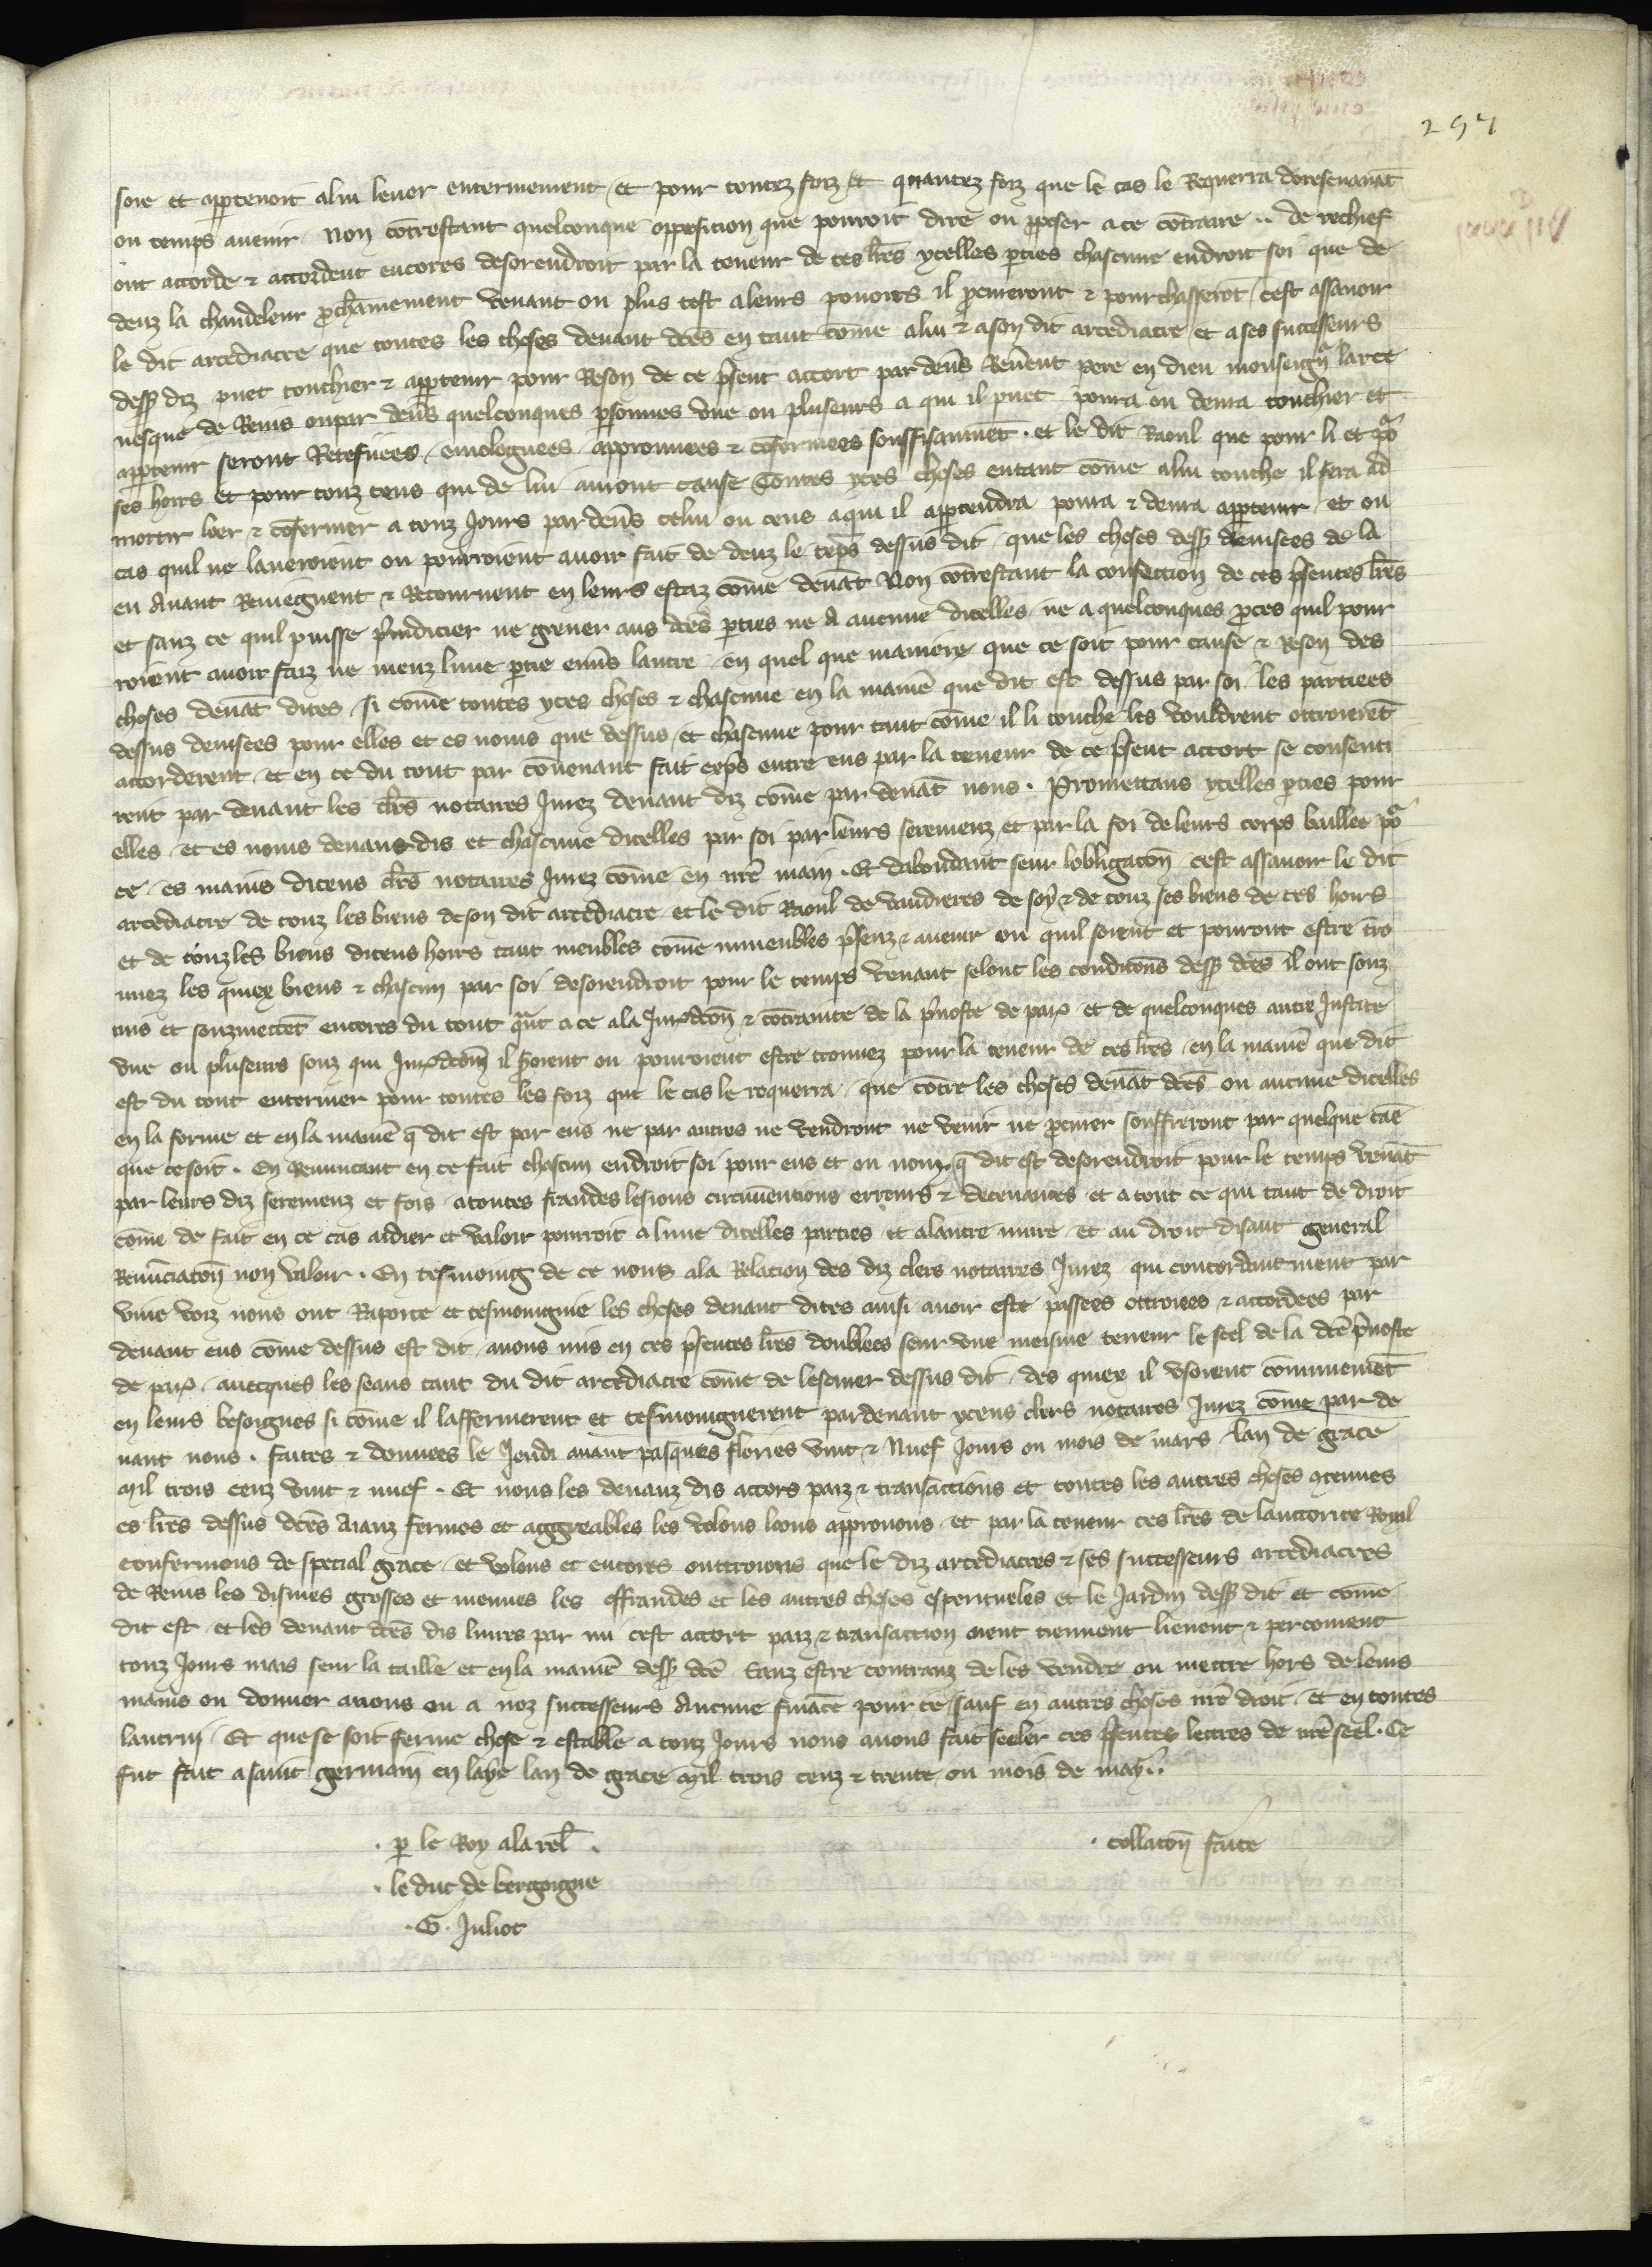 297
soie et appartenoit a lui lever enterinement et pour toutez foiz et quantez foiz que le cas le Requerra doresenavāt
ou temps avenir non cōtrestant quelconque opposicion que pouroit dire ou proposer a ce cōtraire .. de rechief
ont accorde & accordent encores desorendroit par la teneur de ces lr̄es ycelles parties chascune endroit soi que de
denz la chandeleur prochainement venant ou plus tost a leurs povoirs il procureront & pourchasserōt cest assavoir
le dit arcediacre que toutes les choses devant dc̄es en tant come a lui & a son dit arcediacre et a ses successeurs
dess9 diz puet touchier & appartenir pour Reson de ce p̄sent accort par devs̄ Rev̄ent pere en dieu monseignr larce
vesque de Reins ou par devs̄ quelconques personnes une ou pluseurs a qui il puet poura ou devra touchier et
appartenir seront Retefiiees emologuees approuvees & cōfermees souffisaumēt . et le dit Raoul que pour li et por
ses hoirs et pour touz ceus qui de lui auront cause Toutes yces choses entant cōme a lui touche il fera ad
mortir loer & cōfermer a touz Jours par devs̄ celui ou ceus a qui il appartendra poura & devra appartenir et ou
cas quil ne laveroient ou pourroient avoir fait de denz le tēps dessus dit que les choses dess9 devisees de la
en Avant Reviegnent & Retournent en leurs estaz cōme devāt Non cōtrestant la confection de ces p̄sentes lr̄es
et sanz ce quil puisse p̄iudicier ne grever aus dc̄es parties ne A aucune dicelles ne a quelconques proces quil pour
roient avoir faiz ne meuz lune partie envs̄ lautre en quel que maniere que ce soit pour cause & Reson des
choses devāt dites si cōme toutes yces choses & chascune en la maniē que dit est dessus par soi les partiees
dessus devisees pour elles et es noms que dessus et chascune pour tant cōme il li touche les vouldrent ottroierēt
accorderent et en ce du tout par cōvenant fait exp̄s entre eus par la teneur de ce p̄sent accort se consenti
rent par devant les clr̄s notaires Jurez devant diz cōme par devāt nous . Promettans ycelles parties pour
elles et es noms devans dis et chascune dicelles par soi par leurs seremenz et par la foi de leurs corps baillee por
ce es mains diceus clr̄s notaires Jurez cōme en nr̄e main . Et dabondant seur lobligacōn cest assavoir le dit
arcediacre de touz les biens de son dit arcediacre et le dit Raoul de vaudieres de soy & de touz ses biens de ces hoirs
et de touz les biens diceus hoirs tant meubles cōme immeubles p̄senz & avenir ou quil soient et pouront estre tro
uvez les quiex biens & chascun par soi desorendroit pour le temps venant selont les condicōns dess9 dc̄es il ont souz
mis et souzmettēt encores du tout quāt a ce a la Jur̄dcōn & cōtrainte de la p̄voste de par̄ et de quelconques autre Justice
une ou pluseurs souz qui Jur̄dcōn il soient ou pouroient estre trouvez pour la teneur de ces lr̄es en la maniē que dit
est du tout enteriner pour toutes les foiz que le cas le requerra que cōtre les choses devāt dc̄es ou aucune dicelles
en la forme et en la maniē q̄ dit est par eus ne par autres ne vendront ne venir ne procurer souffreront par quelque caē
que ce soit . En Renuncant en ce fait chascun endroit soi pour eus et ou nom q̄ dit est desorendroit pour le temps venāt
par leurs diz seremenz et fois a toutes fraudes lesions circūventions erreurs & decevances et a tout ce qui tant de droit
cōme de fait en ce cas aidier et valoir pourroit a lune dicelles parties et a lautre nuire et au droit disant general
Renūciacōn non valoir . En tesmoing de ce nous a la Relacion des diz clers notaires Jurez qui concordantment par
vive voiz nous ont Raporte et tesmoingnie les choses devant dites ainsi avoir este passees ottroiees & accordees par
devant eus cōme dessus est dit avons mis en ces p̄sentes lr̄es doublees seur une meisme teneur le seel de la dc̄e p̄voste
de par̄ avecques les seaus tant du dit arcediacre cōme de lescuier dessus dit des quiex il usoient cōmunemēt
en leurs besoignes si cōme il laffermerent et tesmoignerent par devant yceus clers notaires Jurez cōme par de
vant nous . faites & donnees le Jeudi avant pasques flories vint & Nuef Jours ou mois de mars lan de grace
mil trois cenz vint & nuef . Et nous les devanz dis accors paiz & transactions et toutes les autres choses 9tenues
es lr̄es dessus dc̄es Aianz fermes et aggreables les volons loons approuvons et par la teneur ces lr̄es de lauctorite Royal
confermons de special grace et volons et encores outtroions que le diz arcediacres & ses successeurs arcediacres
de Reins les dismes grosses et menues les offrandes et les autres choses esperitueles et le Jardin dess9 dit et come
dit est et les devant dc̄es dis livres par an cest accort paiz & transaction aient tiennent lievent & percoivent
touz Jours mais seur la taille et en la maniē dess9 dc̄e Sanz estre contranz de les vendre ou mettre hors de leurs
mains ou donner anous ou a noz successeurs Aucune fināce pour ce sauf en autres choses nr̄e droit et en toutes
lautrui Et que se soit ferme chose & estable a touz Jours nous avons fait seeler ces p̄sentes lettres de nr̄e seel . Ce
fut fait a saint germain en laye lan de grace mil trois cenz & trente ou mois de may ..
. par le Roy a la rel̄ .
. le duc de bergoigne
. G . Juliot
. collacōn faite